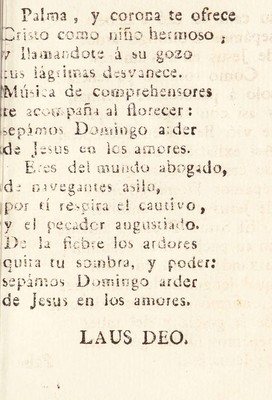 Palma, y corona te ofrece
Cristo como niño hermoso;
y llamandote á su gozo
tus lágrimas desvanece.
Música de comprehensores
te acompaña al florecer:
sepámos Domingo arder
de Jesus en los amores.
Eres del mundo abogado,
de navegantes asilo,
por tí respira el cautivo,
y el pecador angustiado.
De la fiebre los ardores
quita tu sombra, y poder:
sepámos Domingo arder
de Jesus en los amores.
LAUS DEO.